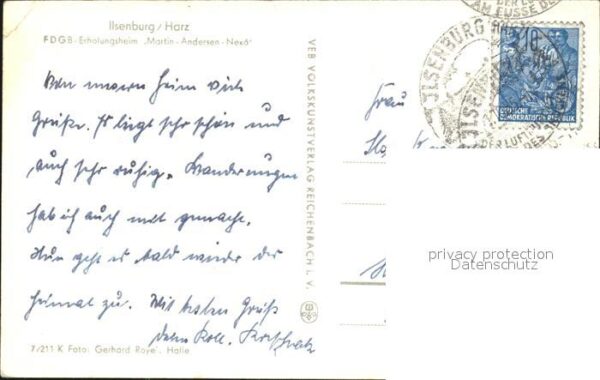 Ilsenburg / Harz
FDGB-Erholungsheim „Martin-Andersen-Nexö"
Von unserm Heim viele
Grüße. Es liegt sehr schön und
auch sehr ruhig. Wanderungen
hab ich auch mit gemacht.
Nun geht es bald wieder der
Heimat zu. Mit besten Gruß
Koll.
7/211 K Foto: Gerhard Roye, Halle
VEB VOLKSKUNSTVERLAG REICHENBACH I. V.
Frau
ILSENBURG HARZ
AM FUSSE DE
ILSENBURG
DER LUFT
DEUTSCHE
DEMOKRATISCHE REPUBLIK
privacy protection
Datenschutz